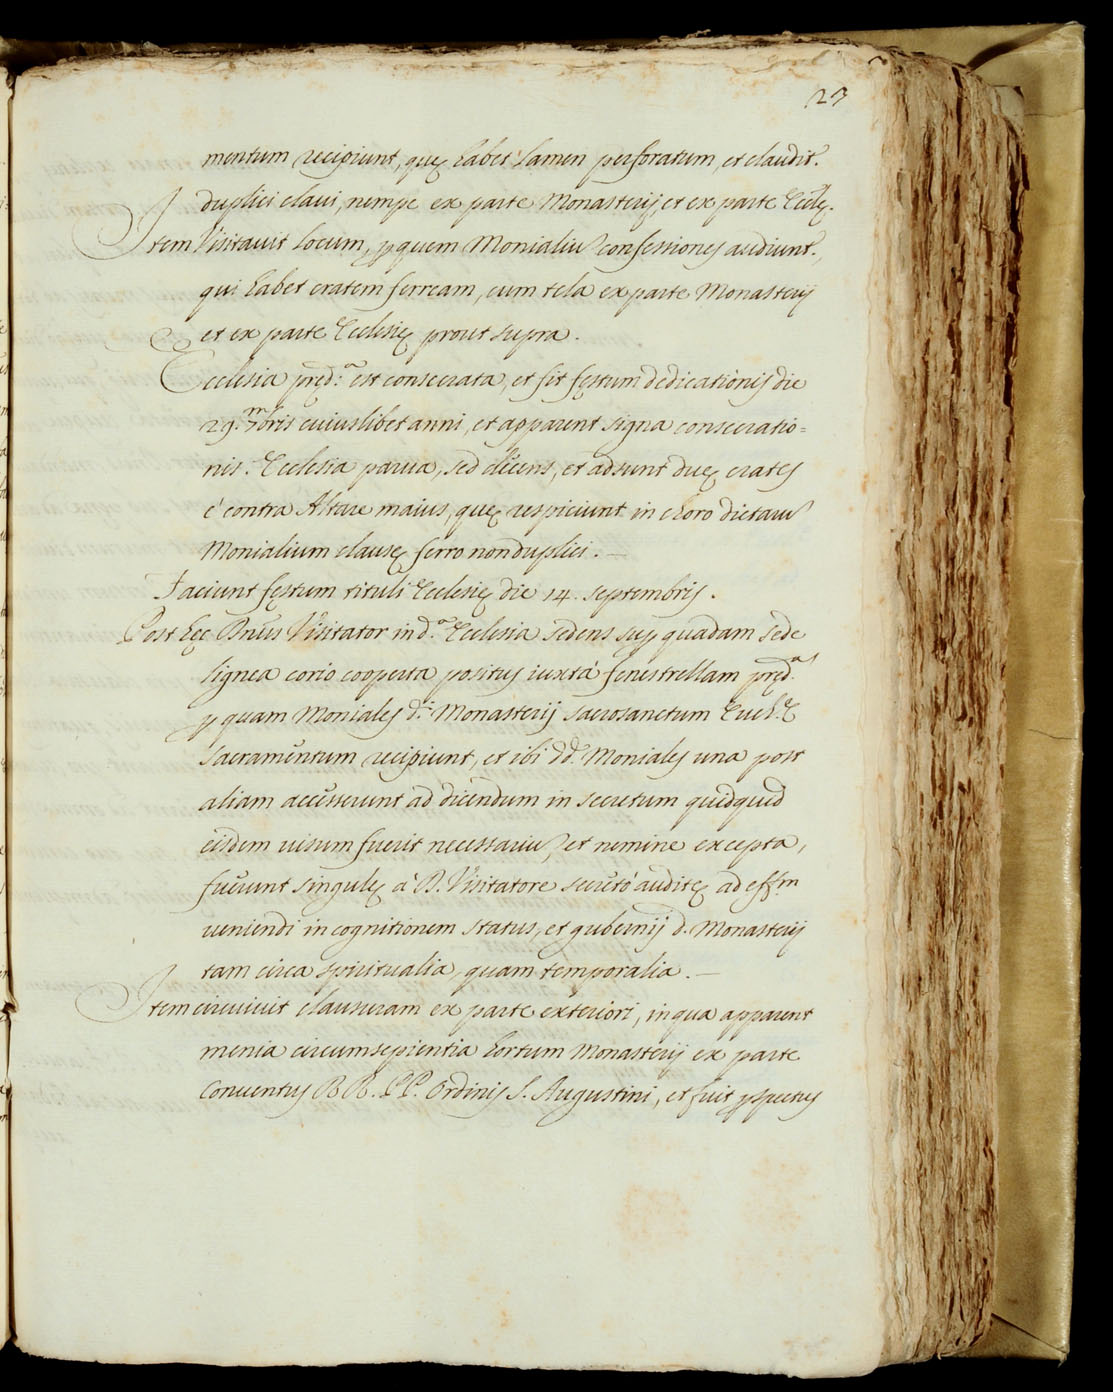 23
mentum recipiunt, quę habet lamen perforatum, et claudit.r
duplici claui, nempe ex parte Monasterij, et ex parte Eccłę.
Item Visitauit Locum, ꝑ quem Monialiũ confessiones audiunt.r,
qui habet cratem ferream, cum tela ex parte Monasterij
et ex parte Ecclesię prout supra.
Ecclesia pręd.a est consecrata, et fit fęstum dedicationis die
29. 7mbris cuiuslibet anni, et apparent signa consecratio=
nis. Ecclesia parua, sed dècens, et adsunt duę crates
è contra Altare maius, quę respiciunt in choro dictarũ
Monialium clausę ferro non duplici. —
Faciunt fęstum tituli Ecclesię die 14. septembris.
Post hęc Dnũs Visitator in d.a Ecclesia sedens suꝑ quadam sede
lignea corio cooperta positus iuxtà fenestrellam pręd.am
ꝑ quam Moniales d.i Monasterij sacrosanctum Euch.ę
sacramentum recipiunt, et ibi dd. Moniales una post
aliam accesserunt ad dicendum in secretum quidquid
eisdem uisum fuerit necessariũ, et nemine excepta,
fuerunt singulę à D. Visitatore secretò auditę ad eff.m
ueniendi in cognitionem status, et gubernij d. Monasterij
tam circa spiritualia, quam temporalia. —
Item circuiuit clausuram ex parte exteriori, in qua apparent
menia circumsepientia hortum Monasterij ex parte
Conuentus RR. PP. Ordinis S. Augustini, et fuit ꝑspectus